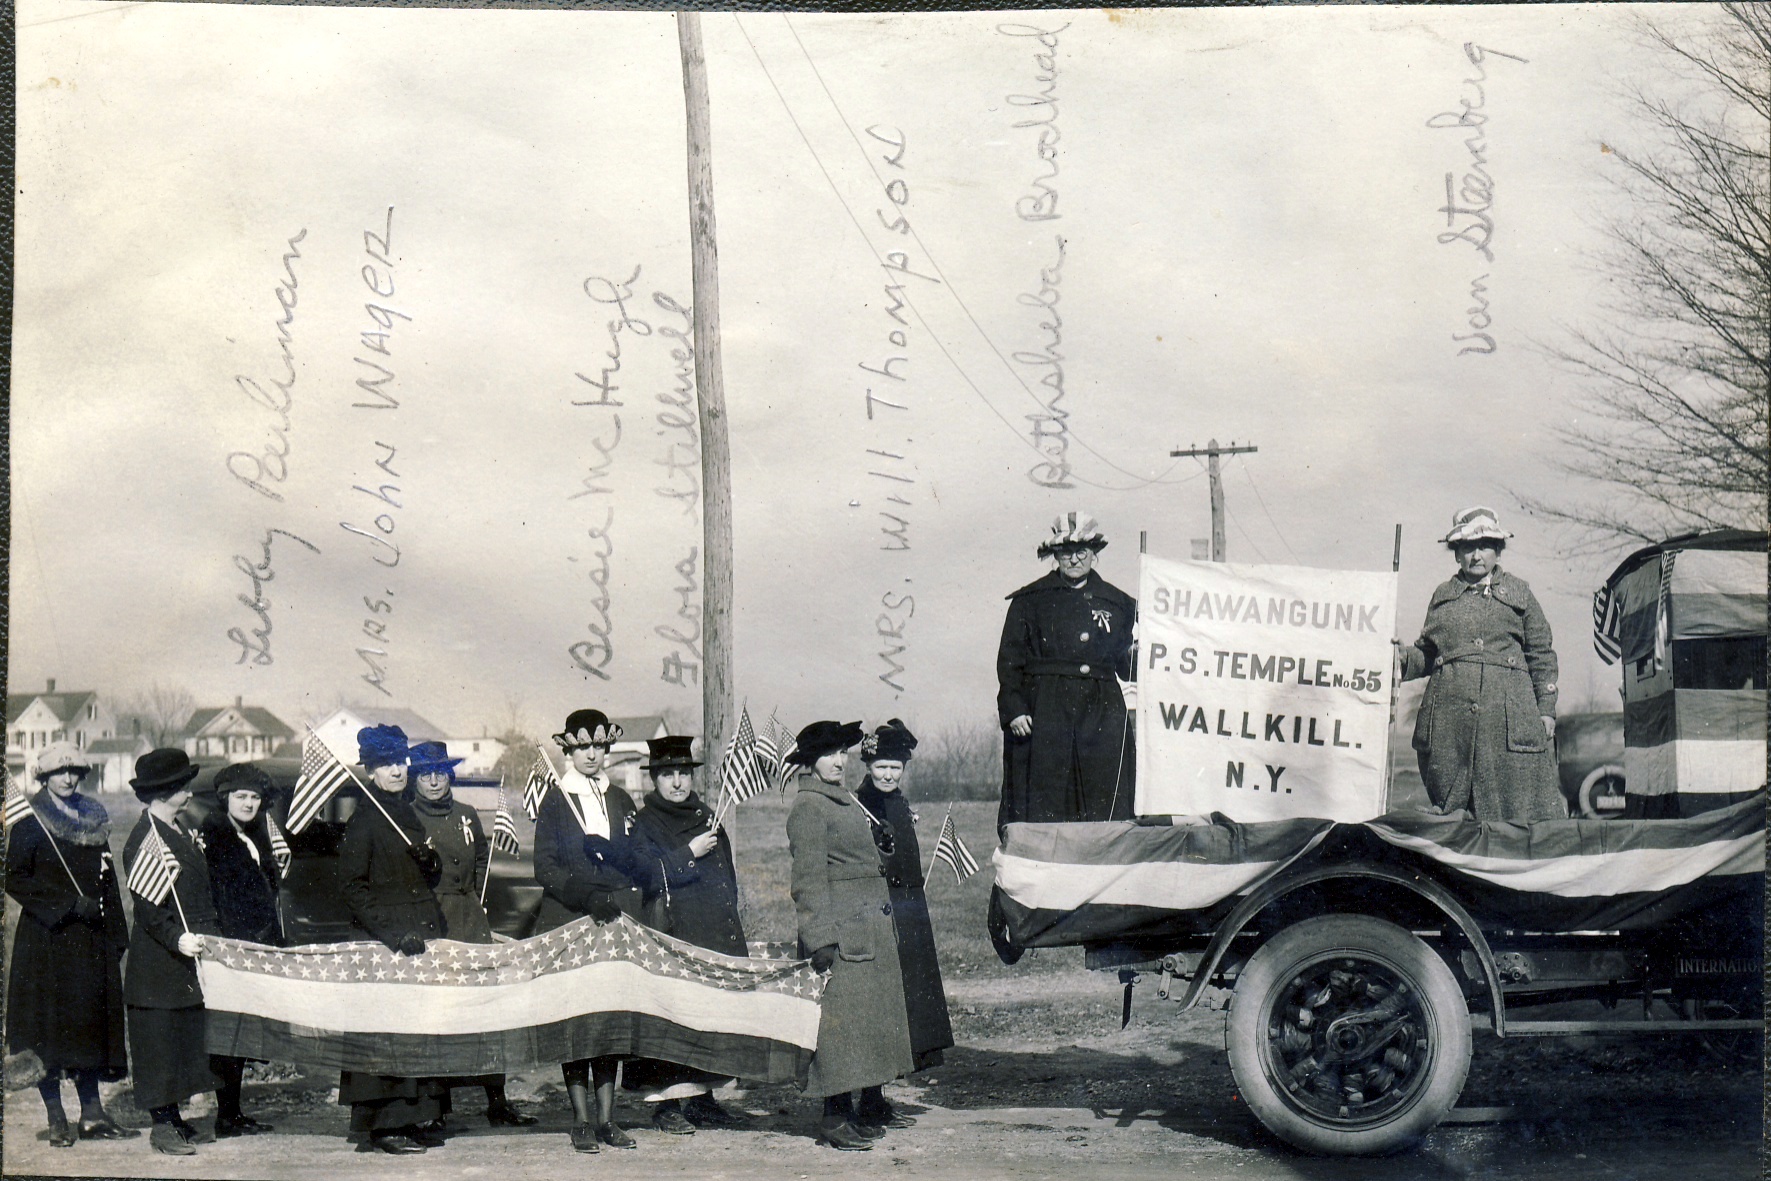 Libby Penliman
MRS. John WAgeR
Bessie McHugh
Flora Stillwell
MRS. Will. ThompsoN
Bethsheba Brodhead
Van Steenberg
SHAWANGUNK
P. S. TEMPLE No 55
WALLKILL.
N.Y.
INTERNATIO